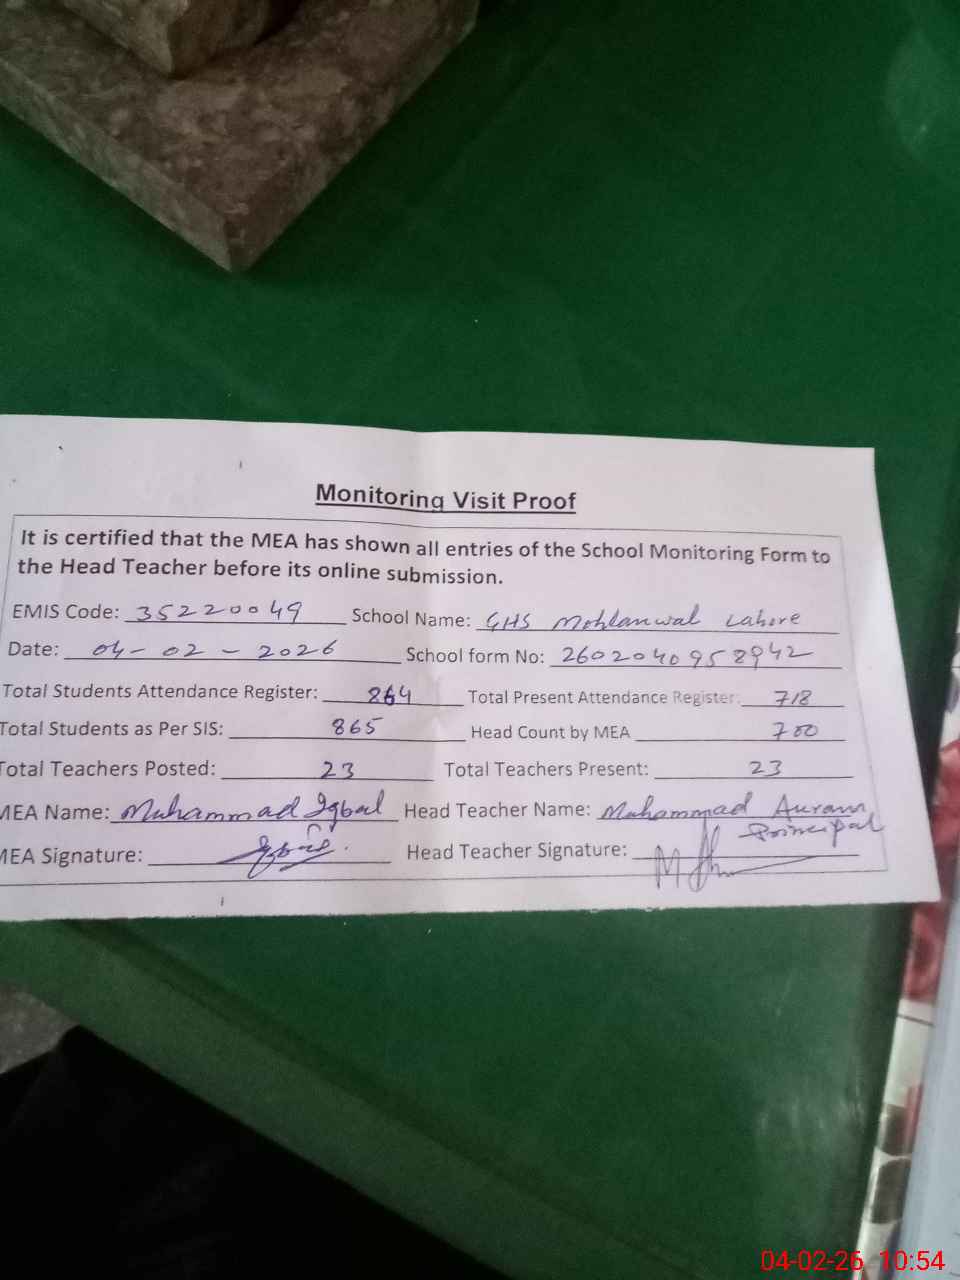 Monitoring Visit Proof
It is certified that the MEA has shown all entries of the School Monitoring Form to
the Head Teacher before its online submission.
EMIS Code: 35220049 School Name: GHS Mohlanwal Lahore
Date: 04-02-2026 School form No: 2602040958942
Total Students Attendance Register: 864 Total Present Attendance Register: 718
Total Students as Per SIS: 865 Head Count by MEA 700
Total Teachers Posted: 23 Total Teachers Present: 23
MEA Name: Muhammad Iqbal Head Teacher Name: Muhammad
Principal
MEA Signature: Iqbal. Head Teacher Signature:
04-02-26 10:54